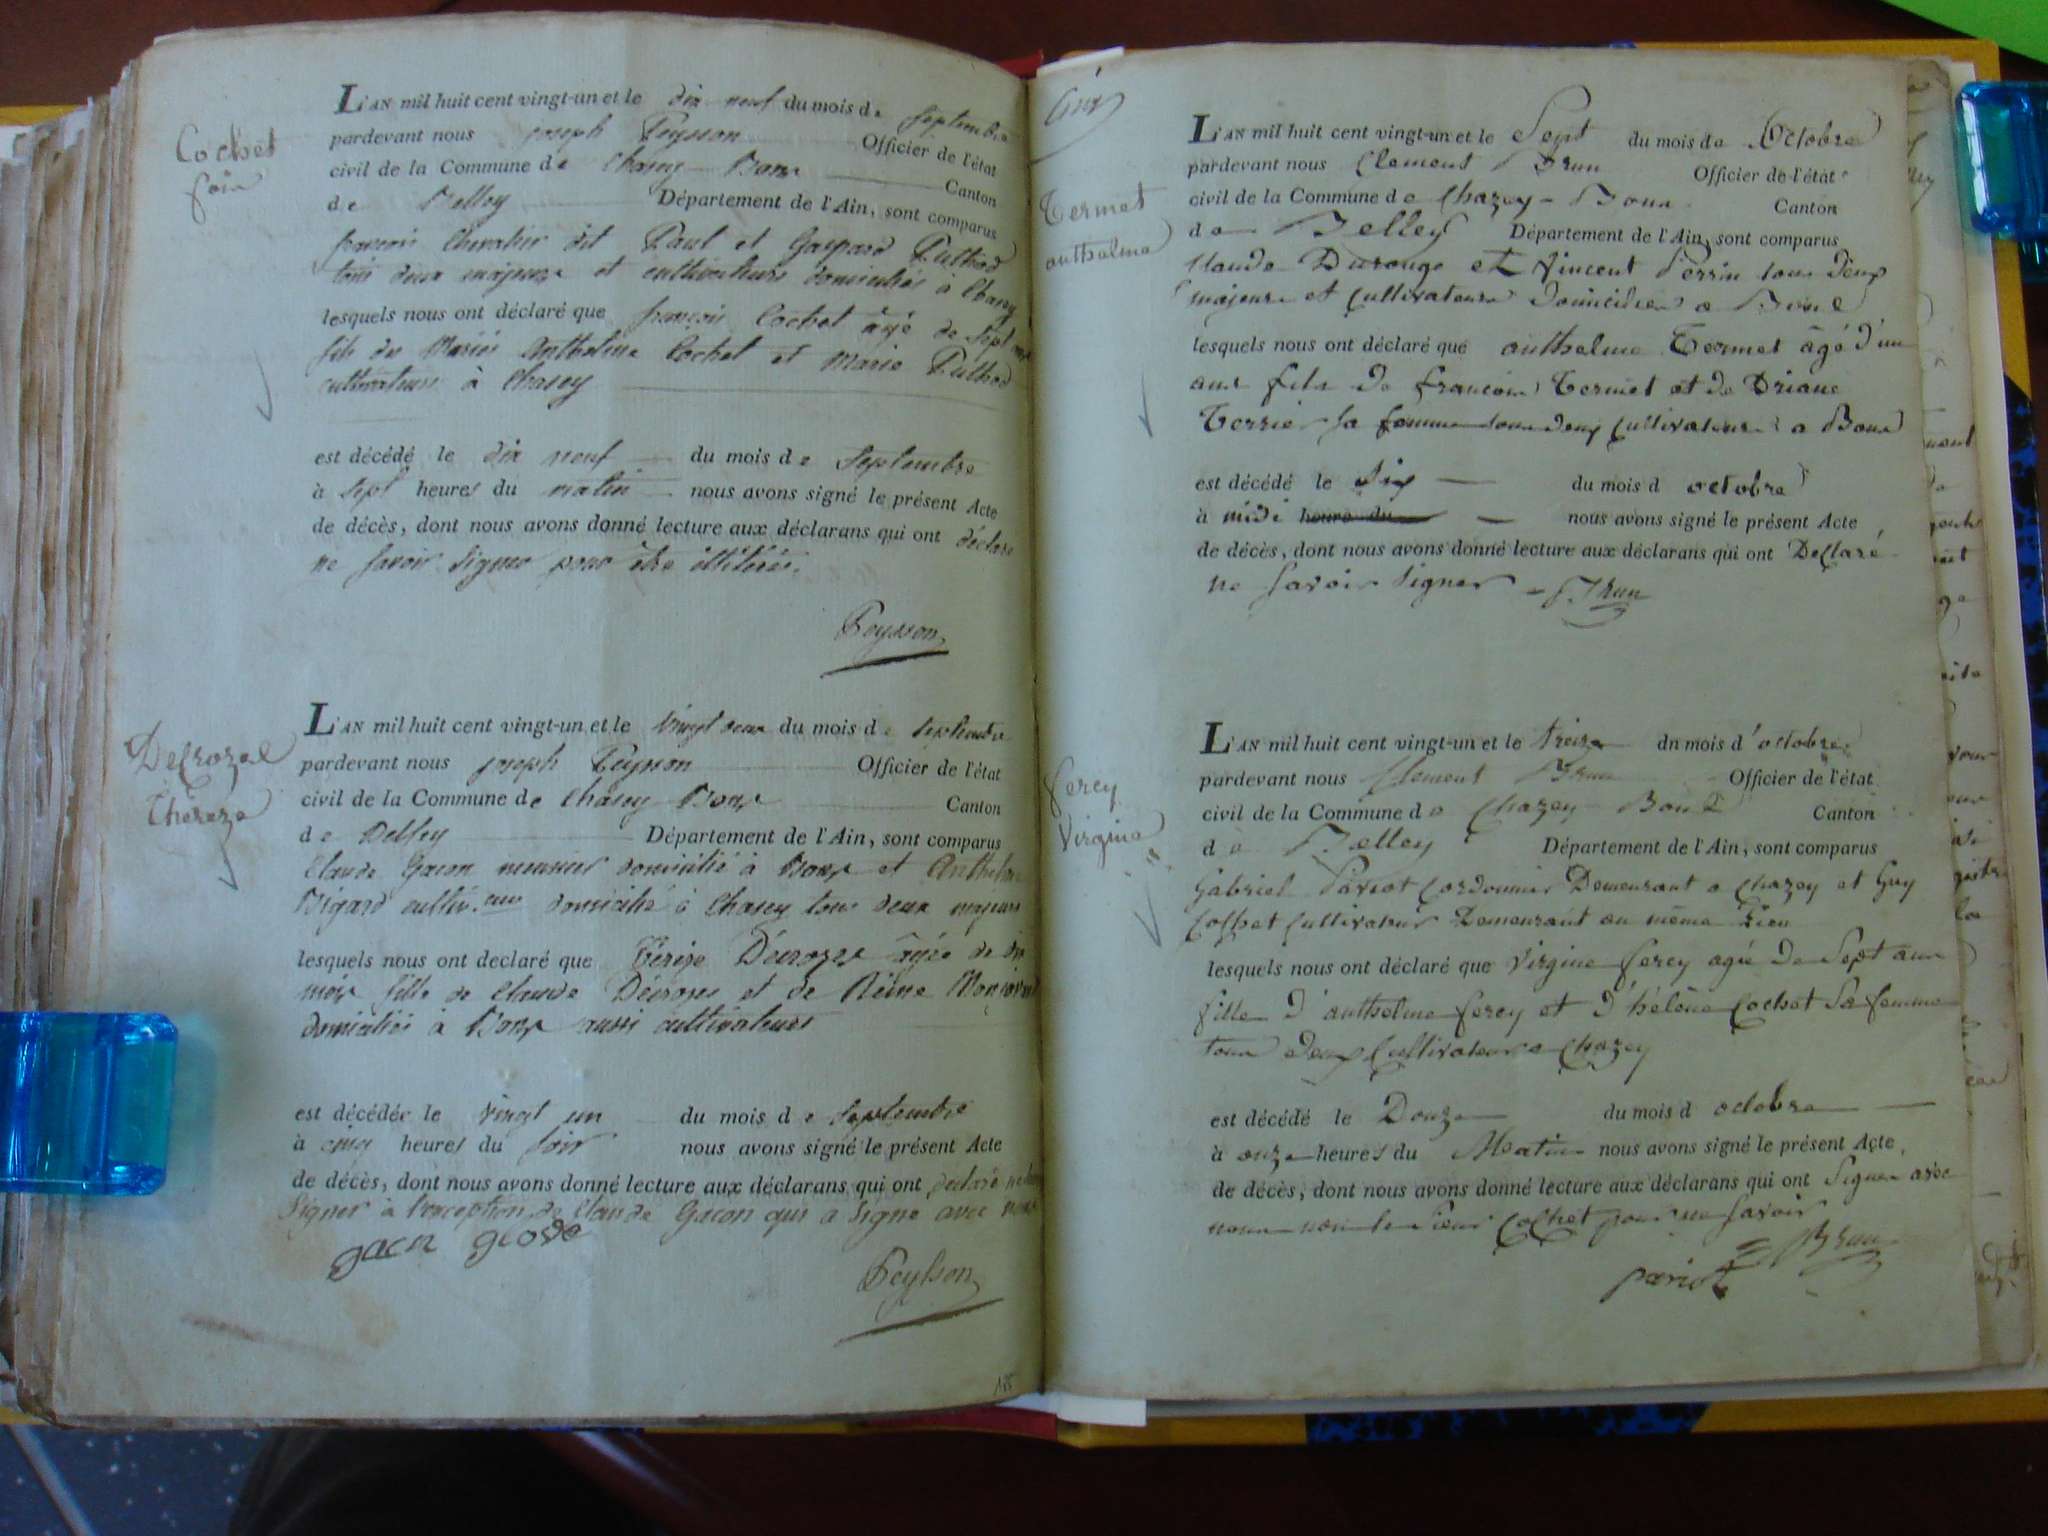 Cochet
L'AN mil huit cent vingt-un et le dix neuf du mois de Septembre
pardevant nous joseph Peysson Officier de l'état
civil de la Commune de Chasey-Bons Canton
de Belley Département de l'Ain, sont comparus
françois Chevalier dit Paul et Gaspard Puthod
tous deux majeurs et cultivateurs domiciliés à Chasey
lesquels nous ont déclaré que françois Cochet âgé de Sept
fils des Mariés Anthelme Cochet et Marie Puthod
cultivateurs à Chasey
est décédé le dix neuf du mois de Septembre
à Sept heures du matin nous avons signé le présent Acte
de décès, dont nous avons donné lecture aux déclarans qui ont déclaré
ne Savoir Signer pour être illitérés.
Peysson
Decrozel
Thereze
L'AN mil huit cent vingt-un et le vingt deux du mois de Septembre
pardevant nous joseph Peysson Officier de l'état
civil de la Commune de Chasey Bons Canton
de Belley Département de l'Ain, sont comparus
Claude Gacon meunier domicilié à Bons et Anthelme
Bigard domicilié à Chasey tous deux majeurs
lesquels nous ont declaré que Térèze âgée de
mois fille de Claude et de Reine
domiciliés à Bons aussi cultivateurs
est décédée le vingt un du mois de Septembre
à cinq heures du Soir nous avons signé le présent Acte
de décès, dont nous avons donné lecture aux déclarans qui ont déclaré
Signer à l'exception de Claude Gacon qui a Signé avec nous
gacn
Peysson
185
Termet
anthelme
L'AN mil huit cent vingt-un et le Sept du mois de Octobre
pardevant nous Clement Brun Officier de l'état
civil de la Commune de Chazey-Bons Canton
de Belley Département de l'Ain, sont comparus
Claude Durouge et Vincent Perrin tous deux
majeurs et Cultivateurs Domiciliés a Bons
lesquels nous ont déclaré que anthelme Termet âgé d'un
ans fils de françois Termet et de Driane
Terrier sa femme tous deux Cultivateurs a Bons
est décédé le Six du mois d octobre
à midi heures du nous avons signé le présent Acte
de décès, dont nous avons donné lecture aux déclarans qui ont Déclaré
ne Savoir Signer Brun
ferey
Virginie
L'AN mil huit cent vingt-un et le treize du mois d'octobre
pardevant nous Clement Brun Officier de l'état
civil de la Commune de Chazey-Bons Canton
de Belley Département de l'Ain, sont comparus
Gabriel Pariot Cordonnier Demeurant a Chazey et Guy
Cochet Cultivateur Demeurant au même Lieu
lesquels nous ont déclaré que Virginie ferey agée De Sept ans
fille d'anthelme ferey et d'hélène Cochet Sa femme
tous deux Cultivateurs a Chazey
est décédé le Douze du mois d octobre
à onze heures du Matin nous avons signé le présent Acte
de décès, dont nous avons donné lecture aux déclarans qui ont Signé avec
nous non le Sieur Cochet pour ne Savoir
pariot Brun